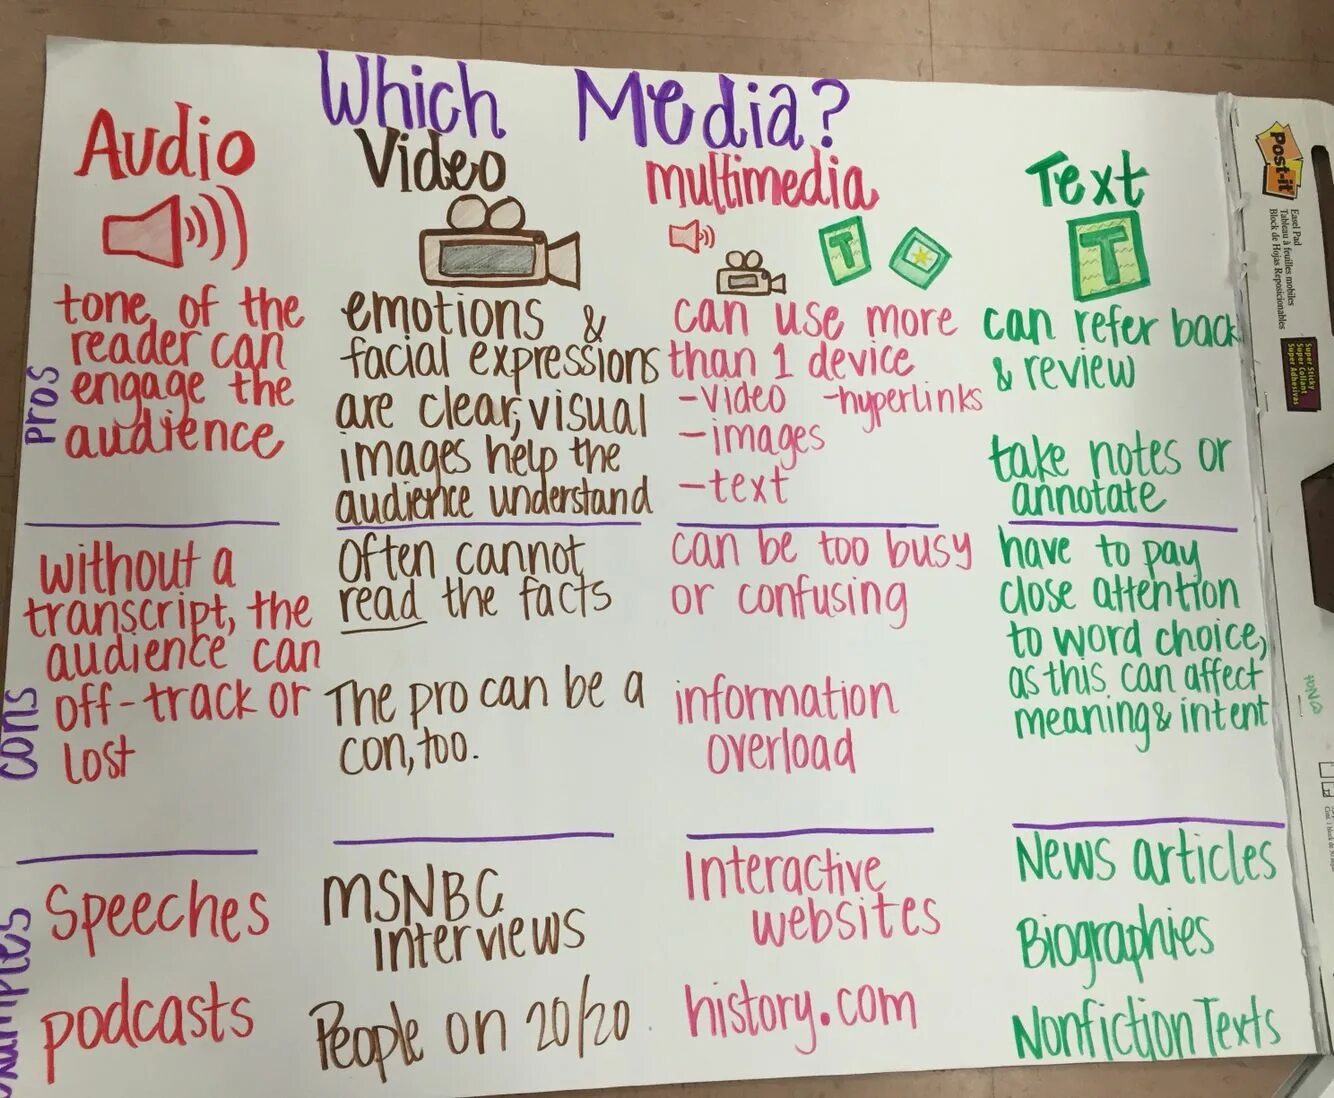 Which Media?
Audio
tone of the
reader can
engage the
audience
without a
transcript, the
audience can
off-track or
lost
Speeches
podcasts
Video
emotions &
facial expressions
are clear, visual
images help the
audience understand
often cannot
read the facts
The pro can be a
con, too.
MSNBC
interviews
People on 20/20
multimedia
T
can use more
than 1 device
-video -hyperlinks
-images
-text
can be too busy
or confusing
information
overload
Interactive
websites
history.com
Text
T
can refer back
& review
take notes or
annotate
have to pay
close attention
to word choice,
as this can affect
meaning & intent
News articles
Biographies
Nonfiction Texts
Pros
Cons
Post-it
Easel Pad
Tableau à feuilles mobiles
Block de Hojas Reposicionables
Super Sticky
Super Collant
Super Adhesivas